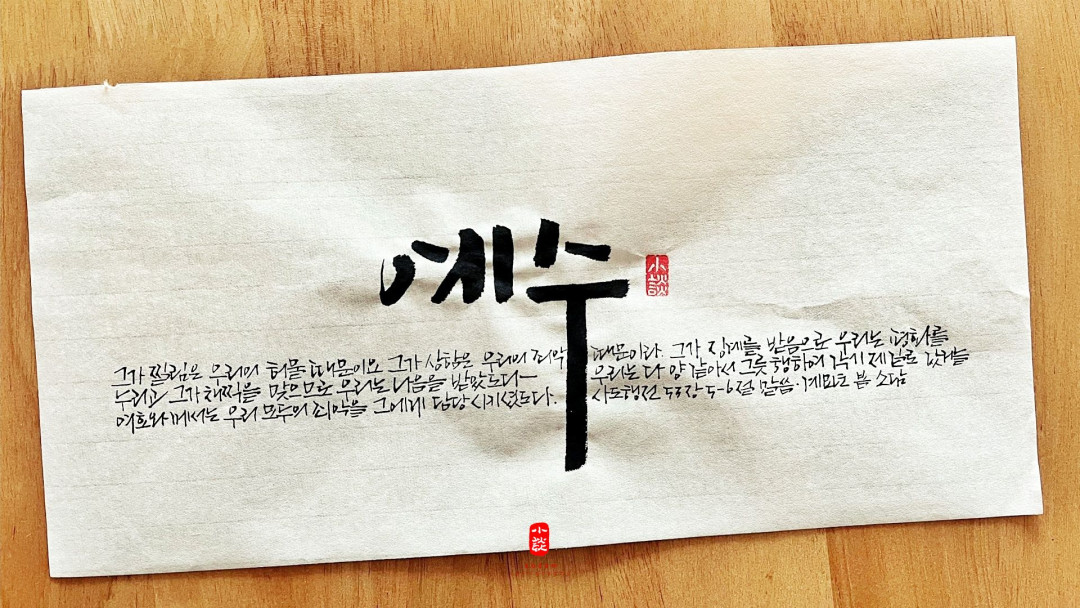 예수
小談
그가 찔림은 우리의 허물 때문이요 그가 상함은 우리의 죄악 때문이라. 그가 징계를 받음으로 우리는 평화를
누리고 그가 채찍을 맞으므로 우리는 나음을 받았도다- 우리는 다 양 같아서 그릇 행하여 각기 제 길로 갔거늘
여호와께서는 우리 모두의 죄악을 그에게 담당시키셨도다. 사도행전 53장 5-6절 말씀. 봄 소담
小談